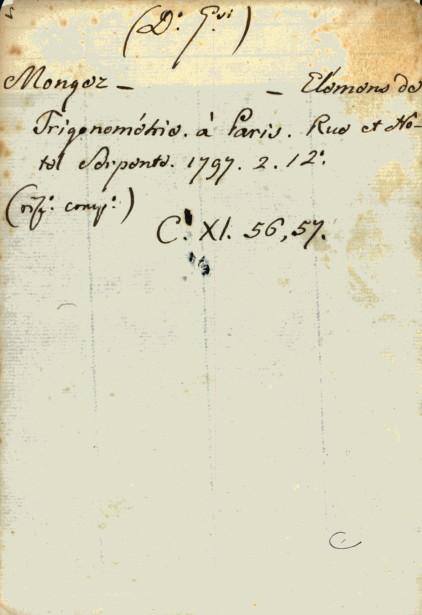 (D.
Mongez - - Elémens de
Trigonométrie. à Paris. Rue et Hô-
tel Serpente. 1797. 2. 12º.
C. XI. 56, 57.